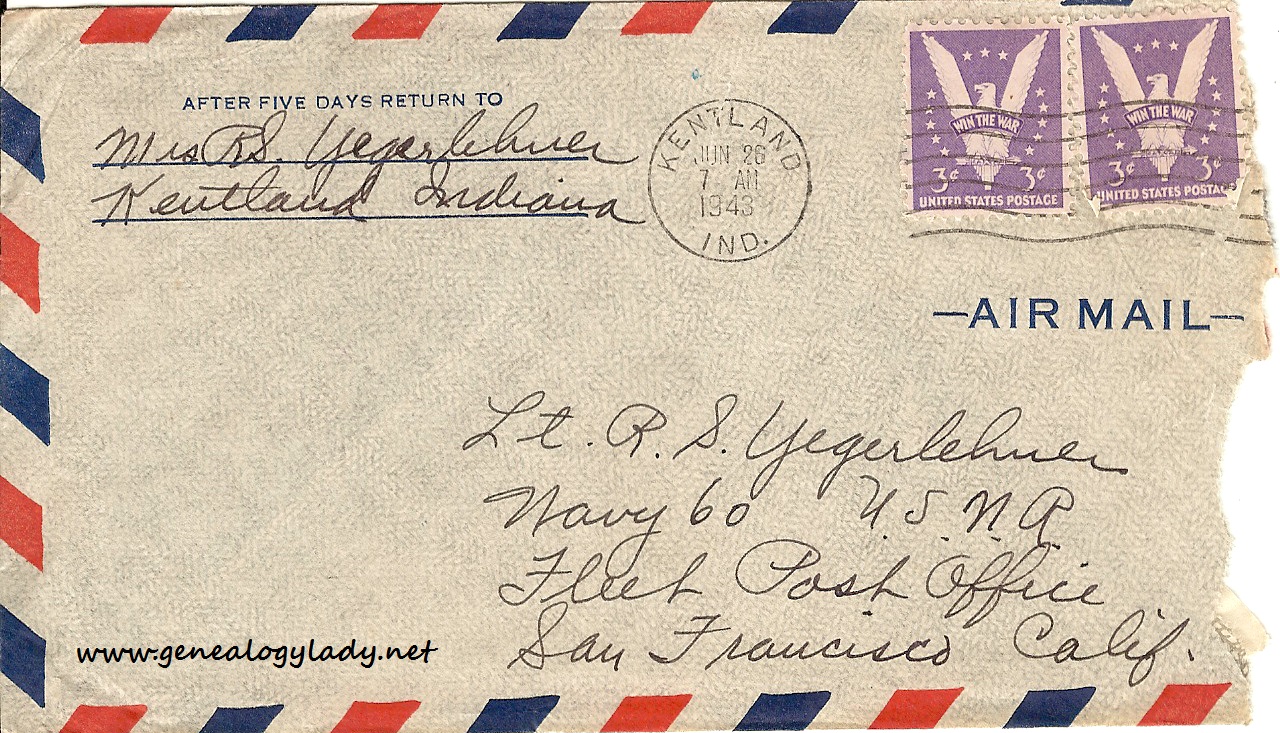 AFTER FIVE DAYS RETURN TO
Mrs R.S. Yegerlehner
Kentland Indiana
KENTLAND
JUN 26
7 AM
1943
IND.
WIN THE WAR
3¢ 3¢
UNITED STATES POSTAGE
WIN THE WAR
3¢ 3¢
UNITED STATES POSTAGE
—AIR MAIL—
Lt. R. S. Yegerlehner
Navy 60 U.S.N.R.
Fleet Post Office
San Francisco Calif.
www.genealogylady.net